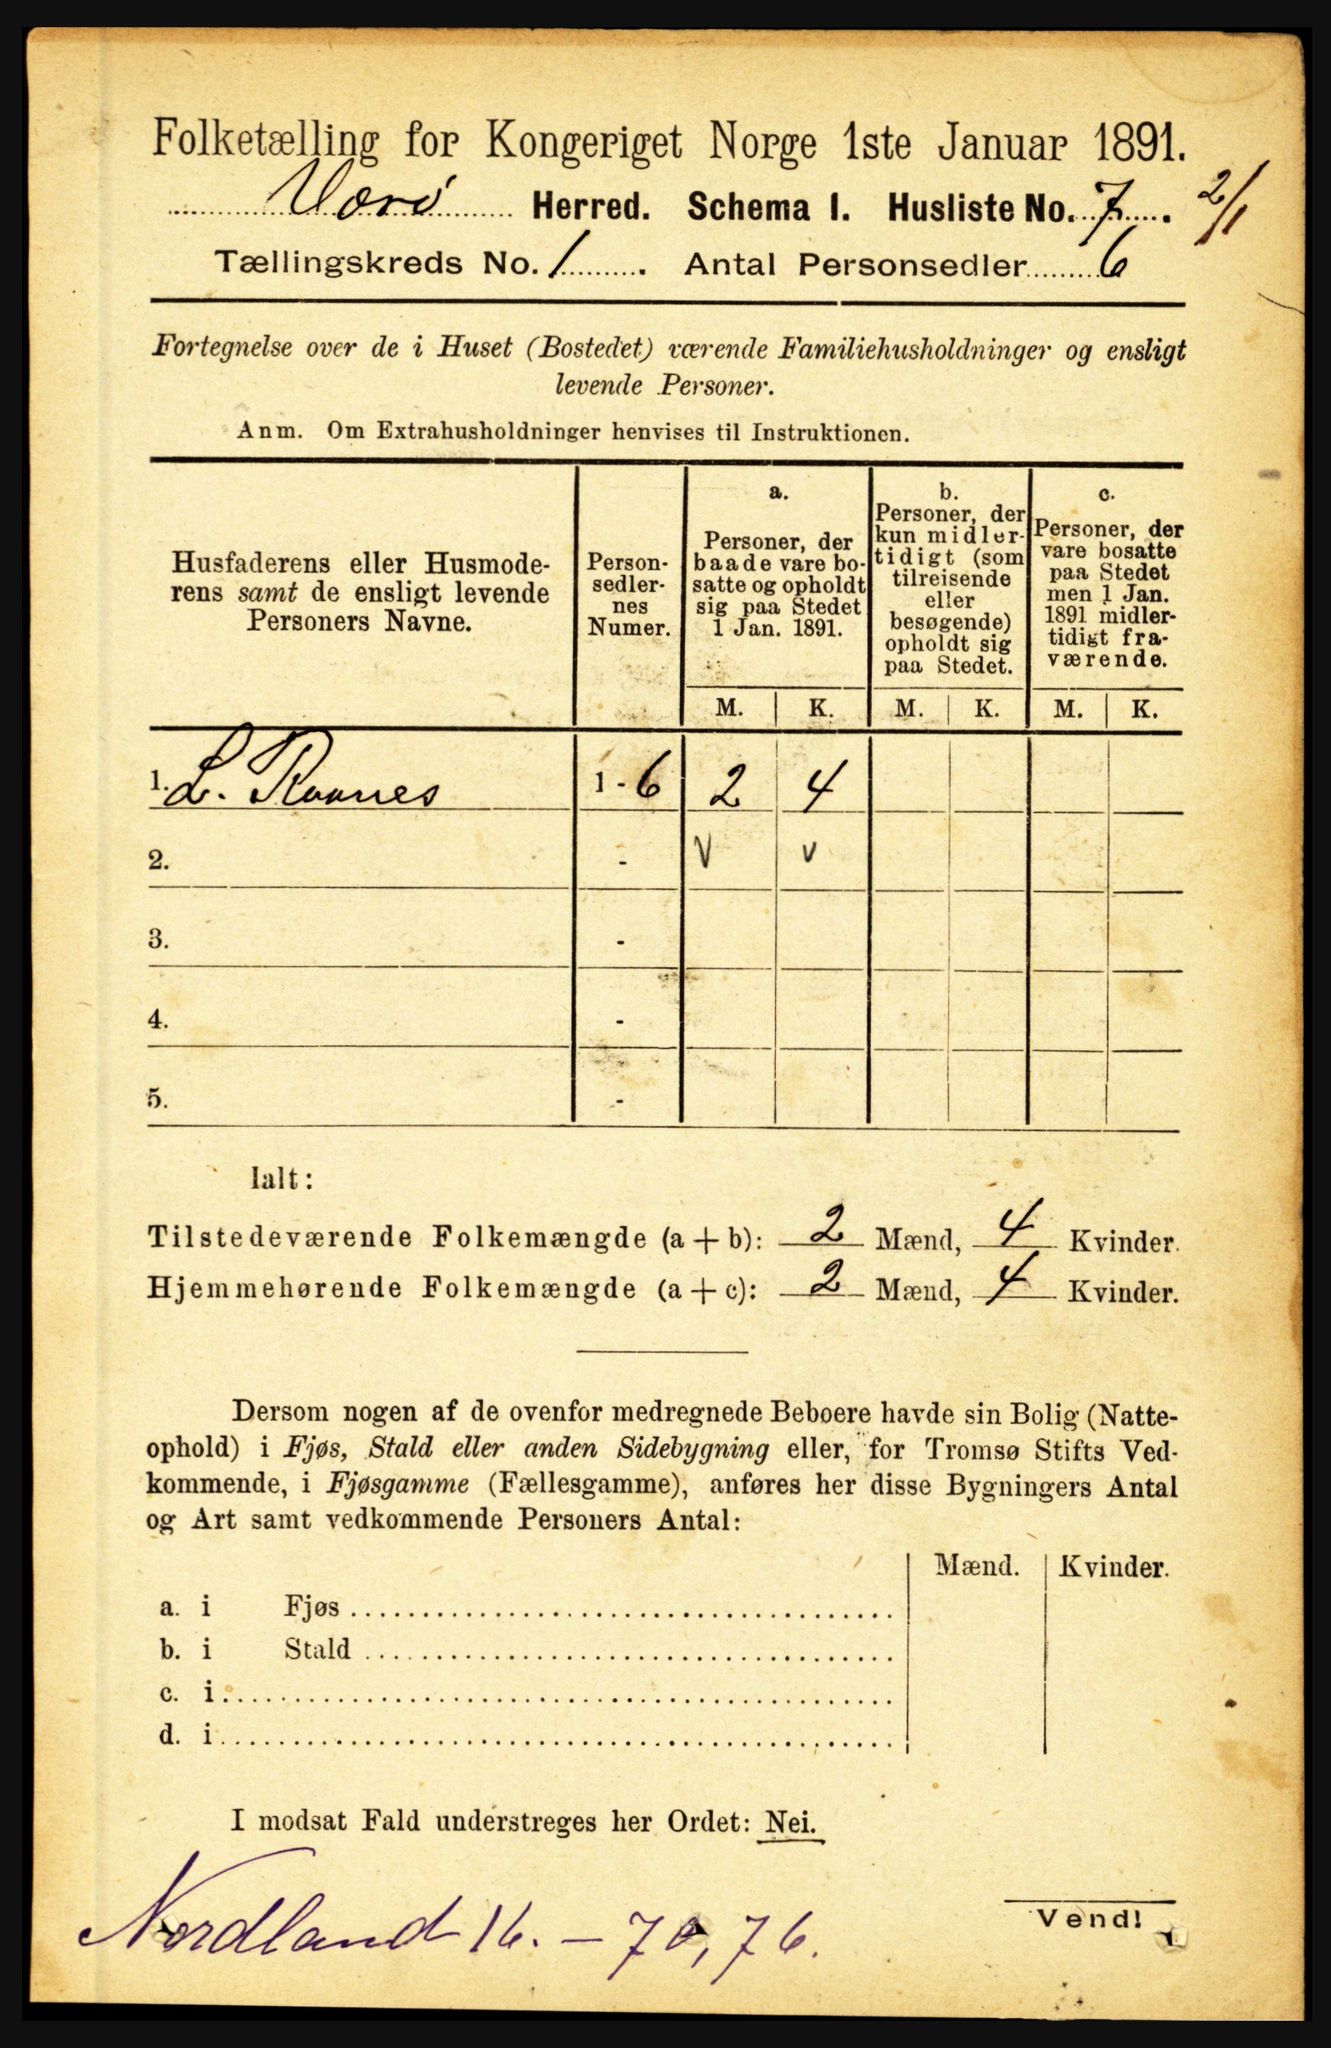 Folketælling for Kongeriget Norge 1ste Januar 1891.
Værø Herred. Schema I. Husliste No. 7. 2/1
Tællingskreds No. 1. Antal Personsedler 6
Fortegnelse over de i Huset (Bostedet) værende Familiehusholdninger og ensligt
levende Personer.
Anm. Om Extrahusholdninger henvises til Instruktionen.
Husfaderens eller Husmode-
rens samt de ensligt levende
Personers Navne.
Person-
sedler-
nes
Numer.
a.
Personer, der
baade vare bo-
satte og opholdt
sig paa Stedet
1 Jan. 1891.
b.
Personer, der
kun midler-
tidigt (som
tilreisende
eller
besøgende)
opholdt sig
paa Stedet.
c.
Personer, der
vare bosatte
paa Stedet
men 1 Jan.
1891 midler-
tidigt fra-
værende.
M. K. M. K. M. K.
1. L. Raanes 1 - 6 2 4
2. - v v
3. -
4. -
5. -
Ialt:
Tilstedeværende Folkemængde (a + b): 2 Mænd, 4 Kvinder.
Hjemmehørende Folkemængde (a + c): 2 Mænd, 4 Kvinder.
Dersom nogen af de ovenfor medregnede Beboere havde sin Bolig (Natte-
ophold) i Fjøs, Stald eller anden Sidebygning eller, for Tromsø Stifts Ved-
kommende, i Fjøsgamme (Fællesgamme), anføres her disse Bygningers Antal
og Art samt vedkommende Personers Antal:
Mænd. Kvinder.
a. i Fjøs
b. i Stald
c. i
d. i
I modsat Fald understreges her Ordet: Nei.
Vend!
Nordland 16. - 70,76.